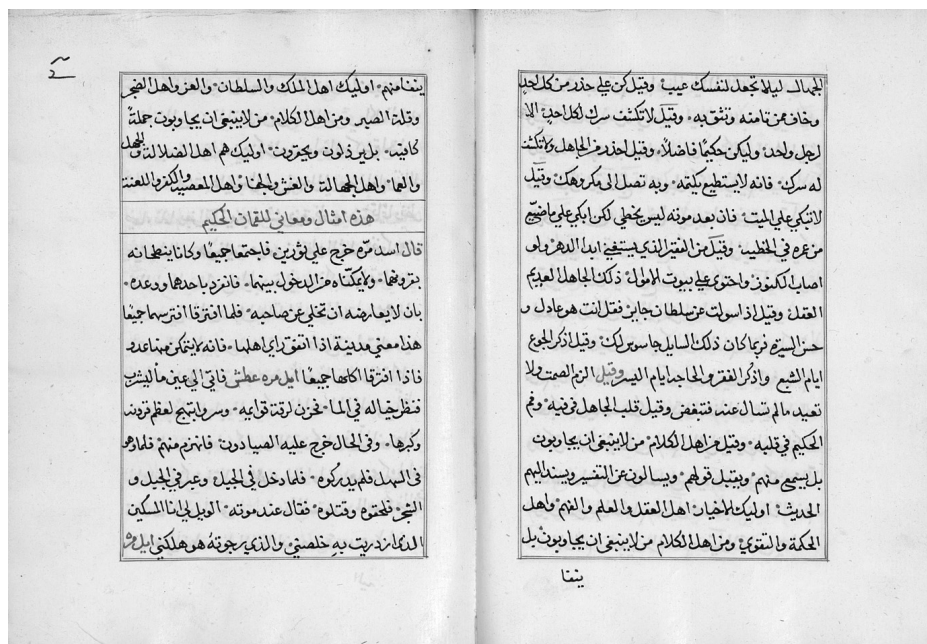 الجهال ليلا تجعل لنفسك عيب وقيل كن علي حذر من كل احد
وخاف ممن تامنه وتثق به وقيل لا تكشف سرك لكل احد الا
لرجل واحد وليكن حكيمًا فاضلاً وقيل احذر من الجاهل ولا تكشف
له سرك فانه لا يستطيع يكتمه وبه تصل الي مكروهك وقيل
لا تبكي علي الميت فان بعد موته ليس يخطي لكن ابكي علي ماضيع
من عمره في الخطيه وقيل من الفقير الذي ليستغني ابدا الدهر ولو
اصاب الكنوز واحتوي علي بيوت الاموال ذلك الجاهل العديم
العقل وقيل اذا سولت عن سلطان جاير فقل انت هو عادل و
حسن السيرة فربما كان ذلك السايل جاسوس لك وقيل اذكر الجوع
ايام الشبع واذكر الفقر والحاجه ايام اليسر وقيل الزم الصمت ولا
تعيد مالم تسال عنه فتبغض وقيل قلب الجاهل في فيه وفم
الحكيم في قلبه وقيل من اهل الكلام من لا ينبغي ان يجاوبون
بل يسمع منهم ويقبل قولهم ويسالون عن التفسير ويسند اليهم
الحديث اوليك الاخيار اهل العقل والعلم والفهم واهل
الحكمة والتقوي ومن اهل الكلام من لا ينبغي ان يجاوبون بل
ينفا
ينفا منهم اوليك اهل الملك والسلطان والعز واهل الضجر
وقلة الصبر ومن اهل الكلام من لا ينبغي ان يجاوبون جملة
كافيه بل يرذلون ويحتقرون اوليك هم اهل الضلالة والجهل
والعما واهل الجهالة والغش والجفا واهل المعصيه والكفر واللعنه
هذه امثال ومعاني للقمان الحكيم
قال اسد مرّه خرج علي ثورين فاجتمعا جميعًا وكانا ينطحانه
بقرونهما ولا يمكناه من الدخول بينهما فانفرد باحدهما ووعده
بان لا يعارضه ان تخلي عن صاحبه فلما افترقا افترسهما جميعًا
هذا معني مدينة اذا اتفق راي اهلها فانه لا يتمكن منها عدو
فاذا افترقا اكلها جميعًا ايل مره عطش فاتي الي عين ما ليشرب
فنظر خياله في الما فحزن لرقة قوايمه وسر وابتهج لعظم قرونه
وكبرها وفي الحال خرج عليه الصيادون فانهزم منهم فلما هو
في السهل فلم يدركوه فلما دخل في الجبل وعبر في الجبل و
الشجر فلحقوه وقتلوه فقال عند موته الويل لي انا المسكين
الذي ازدريت به خلصني والذي رجوته هو هلكني ايل مره